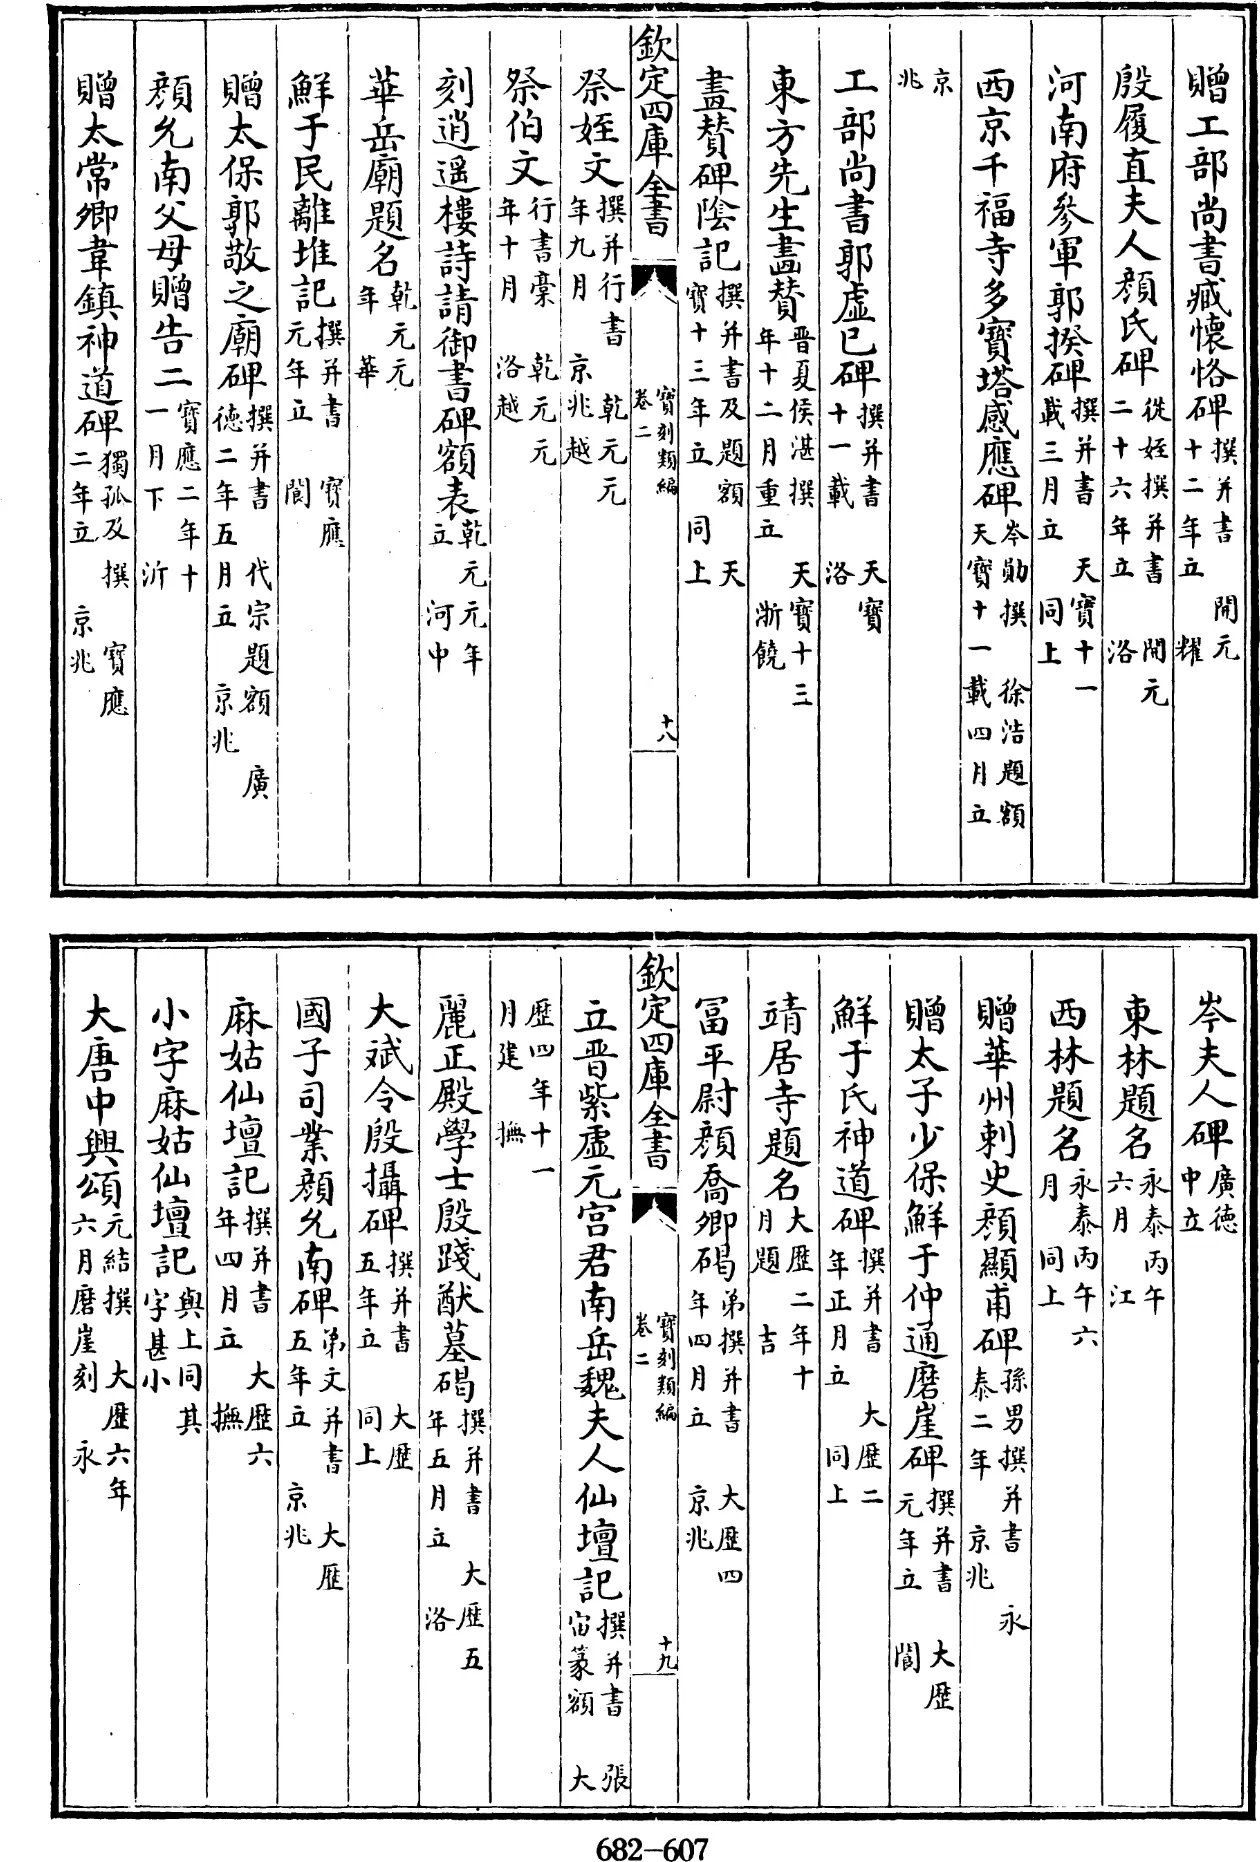 贈工部尚書臧懷恪碑撰并書 開元十二年立 耀
殷履直夫人顏氏碑從姪撰并書 開元二十六年立 洛
河南府參軍郭揆碑撰并書 天寶十一載三月立 同上
西京千福寺多寶塔感應碑岑勛撰 徐浩題額天寶十一載四月立
京兆
工部尚書郭虛已碑撰并書 天寶十一載 洛
東方先生畫贊晉夏侯湛撰 天寶十三年十二月重立 浙饒
畫贊碑陰記撰并書及題額 天寶十三年立 同上
欽定四庫全書 寶刻類編 卷二 十八
祭姪文撰并行書 乾元元年九月 京兆越
祭伯文行書稾 乾元元年十月 洛越
刻逍遥樓詩請御書碑額表乾元元年立 河中
華岳廟題名乾元元年 華
鮮于民離堆記撰并書 寶應元年立 閬
贈太保郭敬之廟碑撰并書 代宗題額 廣德二年五月立 京兆
顏允南父母贈告二寶應二年十一月下 沂
贈太常卿韋鎮神道碑獨孤及撰 寶應二年立 京兆
岑夫人碑廣德中立
東林題名永泰丙午六月 江
西林題名永泰丙午六月 同上
贈華州刺史顏顯甫碑孫男撰并書 永泰二年 京兆
贈太子少保鮮于仲通磨崖碑撰并書 大歷元年立 閬
鮮于氏神道碑撰并書 大歷二年正月立 同上
靖居寺題名大歷二年十月題 吉
富平尉顏喬卿碣弟撰并書 大歷四年四月立 京兆
欽定四庫全書 寶刻類編 卷二 十九
立晉紫虛元宮君南岳魏夫人仙壇記撰并書 張宙篆額 大
歷四年十一月建 撫
麗正殿學士殷踐猷墓碣撰并書 大歷五年五月立 洛
大斌令殷攝碑撰并書 大歷五年立 同上
國子司業顏允南碑弟文并書 大歷五年立 京兆
麻姑仙壇記撰并書 大歷六年四月立 撫
小字麻姑仙壇記與上同其字甚小
大唐中興頌元結撰 大歷六年六月磨崖刻 永
682-607